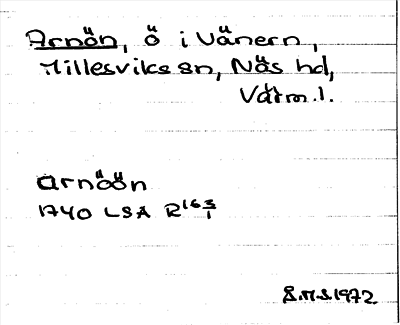 Arnön, ö i Vänern,
Millesviks sn, Näs hd,
Värm. l.
arnöön
1740 LSA R 163/1
S.M.S. 1972